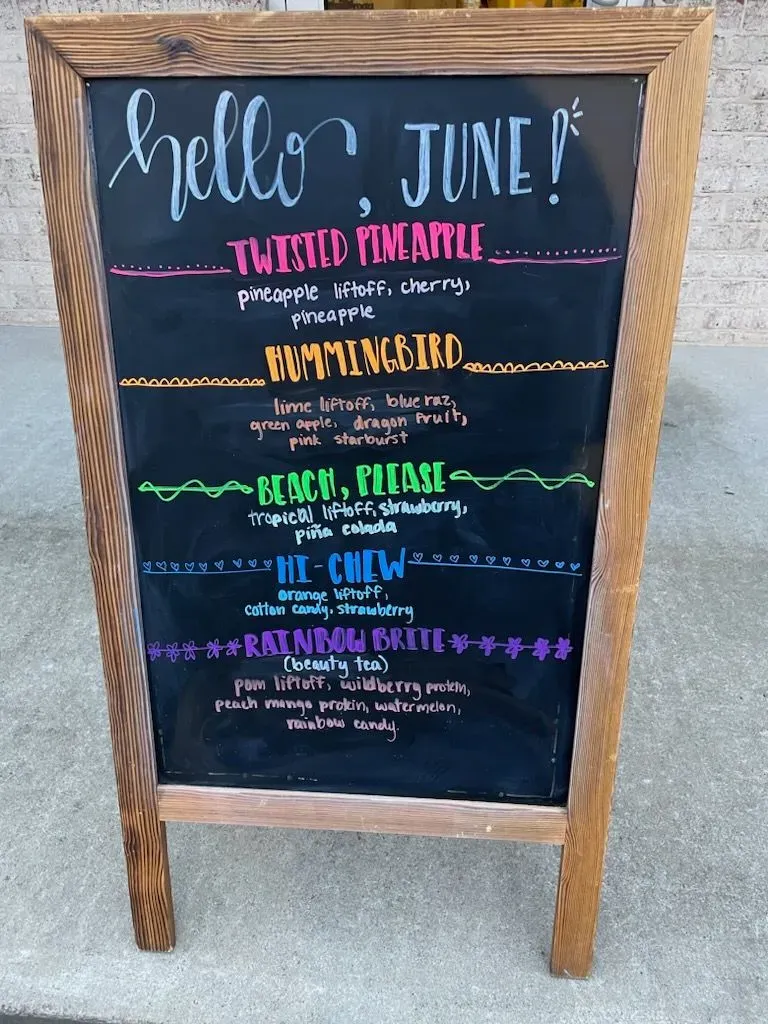 hello, JUNE!
TWISTED PINEAPPLE
pineapple liftoff, cherry,
pineapple
HUMMINGBIRD
lime liftoff, blue raz,
green apple, dragon fruit,
pink starburst
BEACH, PLEASE
tropical liftoff, strawberry,
piña colada
HI-CHEW
orange liftoff,
cotton candy, strawberry
RAINBOW BRITE
(beauty tea)
pom liftoff, wildberry protein,
peach mango protein, watermelon,
rainbow candy.